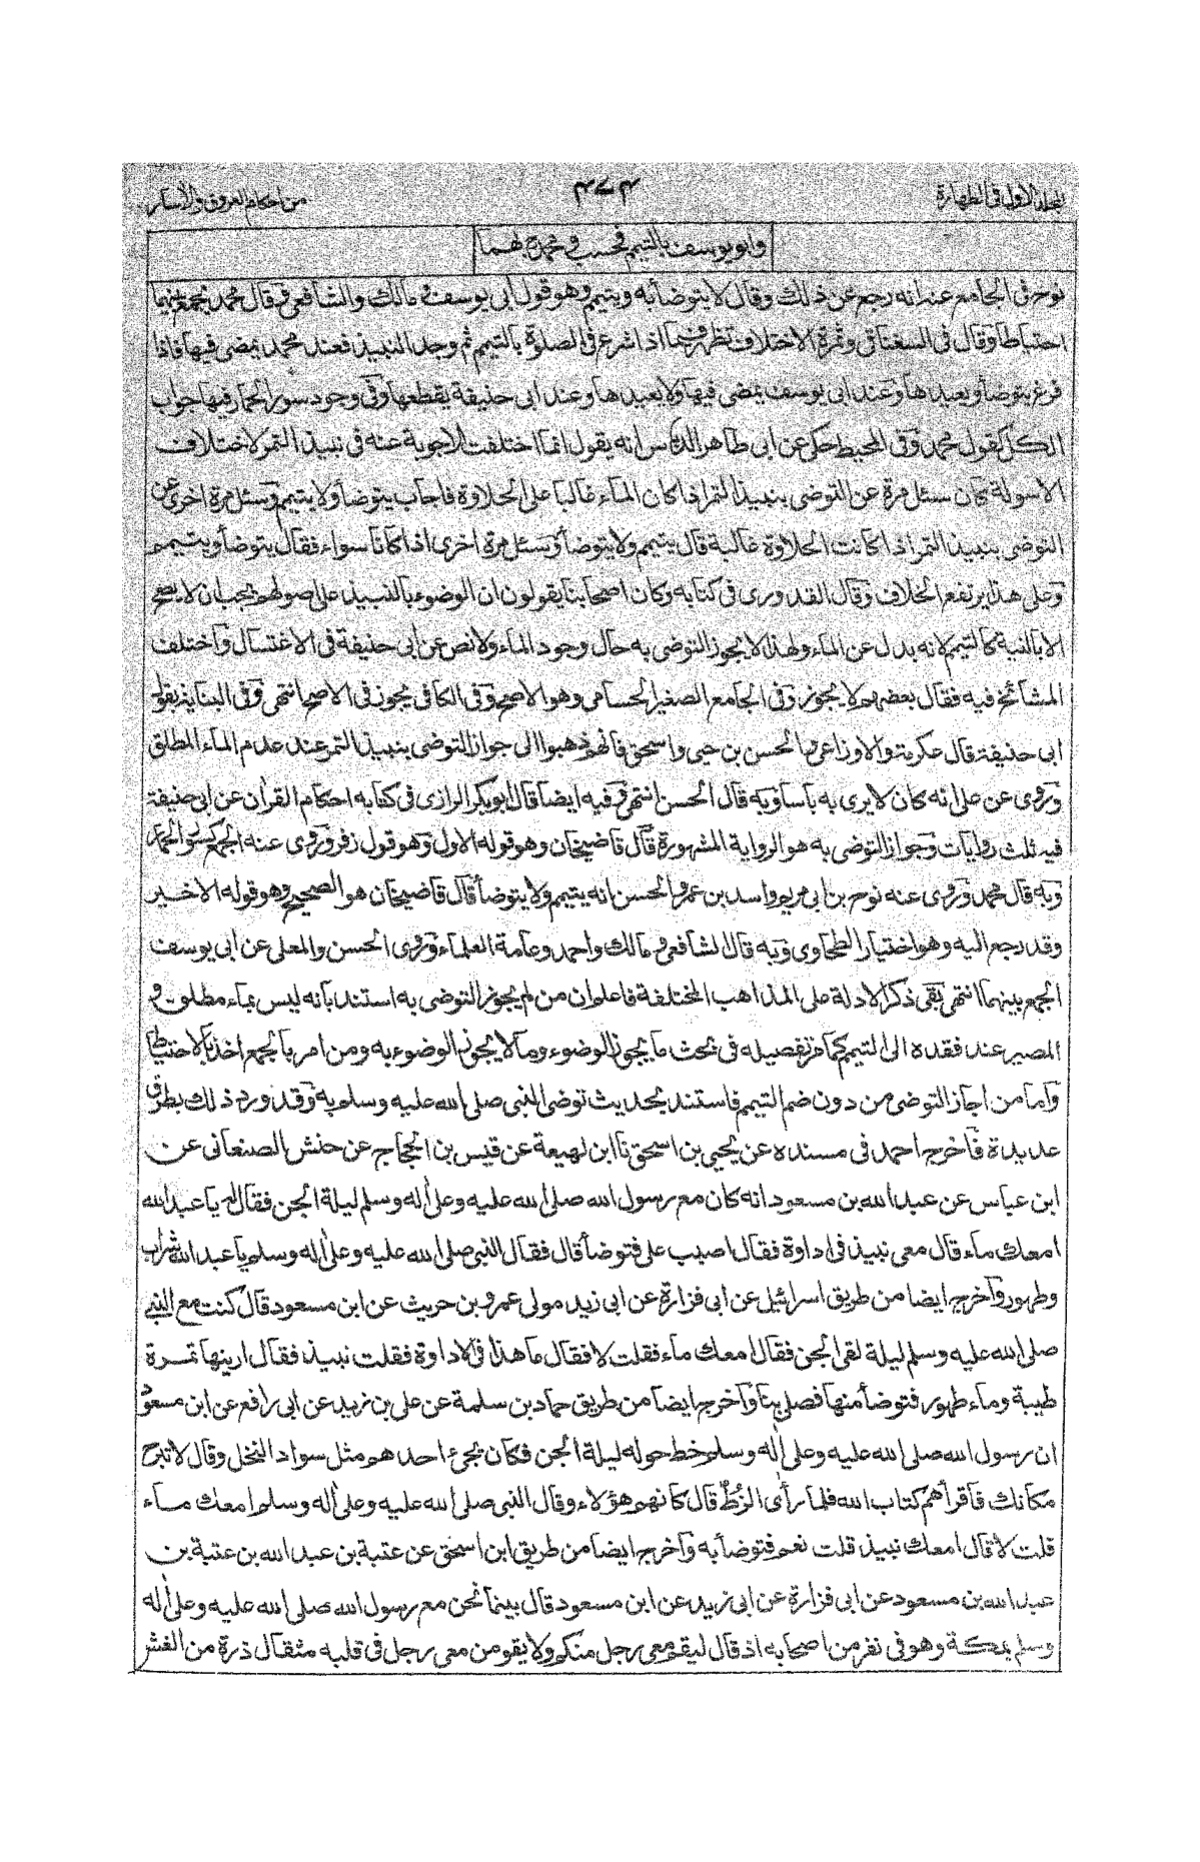 المجلد الاول فى الطهارة ٤٧٤ من احكام العروق والاسآر
وابو يوسف بالتيمم فحسب ومحمد بهما
نوح فى الجامع عنه انه رجع عن ذلك وقال لا يتوضأ به ويتيمم وهو قول ابى يوسف ومالك والشافعى وقال محمد يجمع بينهما
احتياطا وقال فى السغناقى وثمرة الاختلاف تظهر فيما اذا شرع فى الصلوة بالتيمم ثم وجد النبيذ فعند محمد يمضى فيها فاذا
فرغ يتوضأ ويعيدها وعند ابى يوسف يمضى فيها ولا يعيدها وعند ابى حنيفة يقطعها وفى وجود سور الحمار فيها جواب
الكل كقول محمد وفى المحيط حكى عن ابى طاهر الدباس انه يقول انما اختلفت الاجوبة عنه فى نبيذ التمر لاختلاف
الاسولة كان سئل مرة عن التوضى بنبيذ التمر اذا كان الماء غالبا على الحلاوة فاجاب يتوضأ ولا يتيمم وسئل مرة اخرى عن
التوضى بنبيذ التمر اذا كانت الحلاوة غالبة قال يتيمم ولا يتوضأ وسئل مرة اخرى اذا كانا سواء فقال يتوضأ ويتيمم
وعلى هذا يرتفع الخلاف وقال القدورى فى كتابه وكان اصحابنا يقولون ان الوضوء بالنبيذ على اصولهم يجب ان لا يصح
الا بالنية كالتيمم لانه بدل عن الماء ولهذا لا يجوز التوضى به حال وجود الماء ولا نص عن ابى حنيفة فى الاغتسال واختلف
المشائخ فيه فقال بعضهم لا يجوز وفى الجامع الصغير الحسامى وهو الاصح وفى الكافى يجوز فى الاصح انتهى وفى البناية بقول
ابى حنيفة قال عكرمة والاوزاعى والحسن بن حيى واسحق فانهم ذهبوا الى جواز التوضى بنبيذ التمر عند عدم الماء المطلق
وروى عن على انه كان لا يرى به بأسا وبه قال الحسن انتهى وفيه ايضا قال ابو بكر الرازى فى كتابه احكام القرآن عن ابى حنيفة
فيه ثلث روايات وجواز التوضى به هو الرواية المشهورة قال قاضيخان وهو قوله الاول وهو قول زفر وروى عنه الجمع كسور الحمار
وبه قال محمد وروى عنه نوح بن ابى مريم واسد بن عمرو والحسن انه يتيمم ولا يتوضأ قال قاضيخان هو الصحيح وهو قوله الاخير
وقد رجع اليه وهو اختيار الطحاوى وبه قال الشافعى ومالك واحمد وعامة العلماء وروى الحسن والمعلى عن ابى يوسف
الجمع بينهما انتهى بقى ذكر الادلة على المذاهب المختلفة فاعلم ان من لم يجوز التوضى به استند بانه ليس بماء مطلق و
المصير عند فقده الى التيمم كما مر تفصيله فى بحث ما يجوز الوضوء وما لا يجوز الوضوء به ومن امر بالجمع اخذ بالاحتياط
واما من اجاز التوضى من دون ضم التيمم فاستند بحديث توضى النبى صلى الله عليه وسلم به وقد ورد ذلك بطرق
عديدة فاخرج احمد فى مسنده عن يحيى بن اسحق نا ابن لهيعة عن قيس بن الحجاج عن حنش الصنعانى عن
ابن عباس عن عبد الله بن مسعود انه كان مع رسول الله صلى الله عليه وعلى اله وسلم ليلة الجن فقال له يا عبد الله
امعك ماء قال معى نبيذ فى اداوة فقال اصبب على فتوضأ قال فقال النبى صلى الله عليه وعلى اله وسلم يا عبد الله شراب
وطهور واخرج ايضا من طريق اسرائيل عن ابى فزارة عن ابى زيد مولى عمرو بن حريث عن ابن مسعود قال كنت مع النبى
صلى الله عليه وسلم ليلة لقى الجن فقال امعك ماء فقلت لا فقال ما هذا فى الاداوة فقلت نبيذ فقال ارينها تمرة
طيبة وماء طهور فتوضأ منها فصلى بنا واخرج ايضا من طريق حماد بن سلمة عن على بن زيد عن ابى رافع عن ابن مسعود
ان رسول الله صلى الله عليه وعلى اله وسلم خط حوله ليلة الجن فكان يجئ احدهم مثل سواد النخل وقال لا تبرح
مكانك فاقرأهم كتاب الله فلما رأى الزُّطّ قال كانهم هؤلاء وقال النبى صلى الله عليه وعلى اله وسلم امعك ماء
قلت لا قال امعك نبيذ قلت نعم فتوضأ به واخرج ايضا من طريق ابن اسحق عن عتبة بن عبد الله بن عتبة بن
عبد الله بن مسعود عن ابى فزارة عن ابى زيد عن ابن مسعود قال بينما نحن مع رسول الله صلى الله عليه وعلى اله
وسلم بمكة وهو فى نفر من اصحابه اذ قال ليقم معى رجل منكم ولا يقومن معى رجل فى قلبه مثقال ذرة من الغش